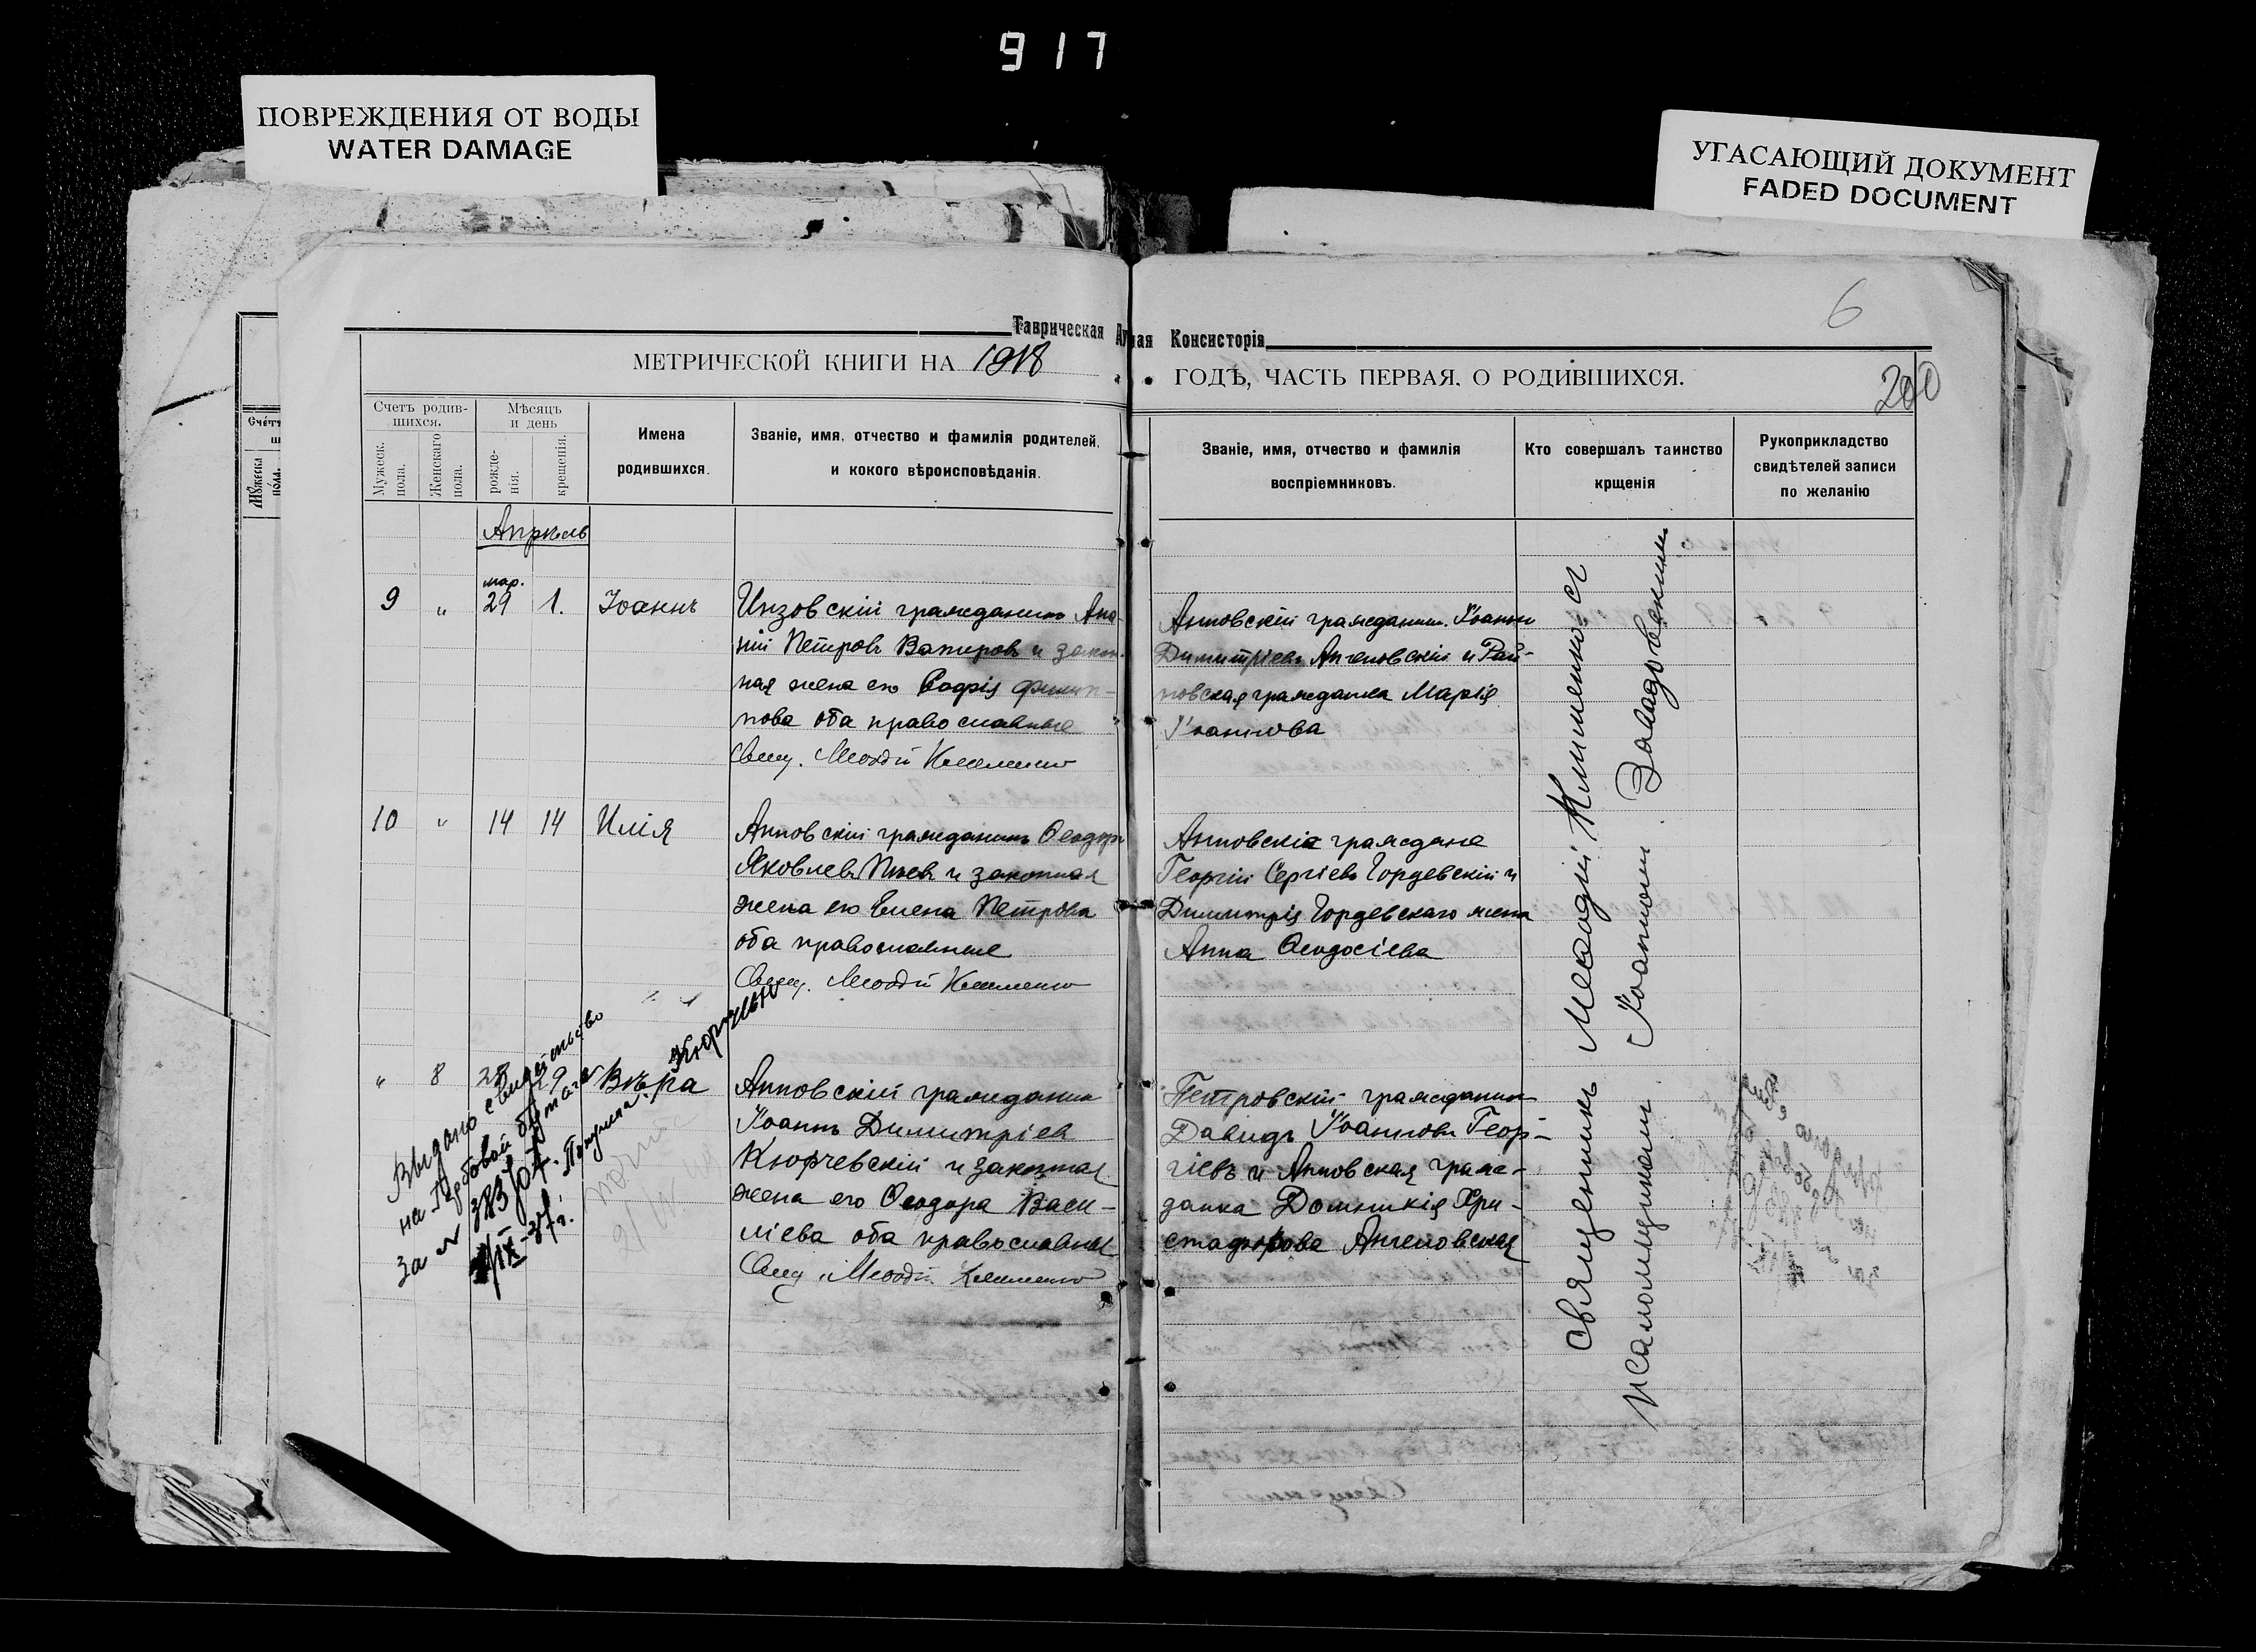 917
ПОВРЕЖДЕНИЯ ОТ ВОДЫ
WATER DAMAGE
УГАСАЮЩИЙ ДОКУМЕНТ
FADED DOCUMENT
6
Таврическая
Консисторія
МЕТРИЧЕСКОЙ КНИГИ НА 1918
ГОДѢ, ЧАСТЬ ПЕРВАЯ, О РОДИВШИХСЯ.
200
Счетъ родив-
шихся.
Мужеск.
пола.
Женскаго
пола.
Мѣсяцъ
и день
рожде-
нія.
крещенія.
Имена
родившихся.
Званіе, имя, отчество и фамилія родителей,
и кокого вѣроисповѣданія.
Званіе, имя, отчество и фамилія
воспріемниковъ.
Кто совершалъ таинство
крщенія
Рукоприкладство
свидѣтелей записи
по желанію
Апрѣль
9 " мар. 29 1. Іоаннъ
Инзовскій гражданинъ Ана-
ній Петровъ Вапировъ и закон-
ная жена его Софія Филип-
пова оба православные
Свящ. Меѳодій Клименко
Анновскій гражданин. Іоаннъ
Димитріевъ Ангеловскій и Рай-
новская гражданка Марія
Іоаннова
10 " 14 14 Илія
Анновскій гражданинъ Ѳеодоръ
Яковлевъ и законная
жена его Елена Петрова
оба православные
Свящ. Меѳодій Клименко
Анновскіе граждане
Георгій Сергіевъ Гордевскій и
Димитрія Гордевскаго жена
Анна Ѳеодосіева
" 8 28 29 Вѣра
Анновскій гражданин
Іоаннъ Димитріев
Кюрчевскій и законная
жена его Ѳеодора Васи-
ліева оба православные
Свящ. Меѳодій Клименко
Петровскій гражданин
Давидъ Іоанновъ Геор-
гіевъ и Анновская граж-
данка Домникія Хри-
стофорова Ангеловская
Священникъ Меѳодій Клименко съ
псаломщикомъ Іоанномъ Завадовскимъ
Выдано свидетельство
на гербовой бумаге
за № 383/04. Получила:
IX-37г.